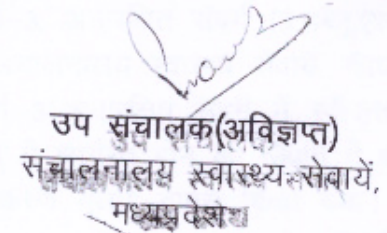 उप संचालक(अविज्ञप्त)
संचालनालय स्वास्थ्य सेवायें,
मध्यप्रदेश